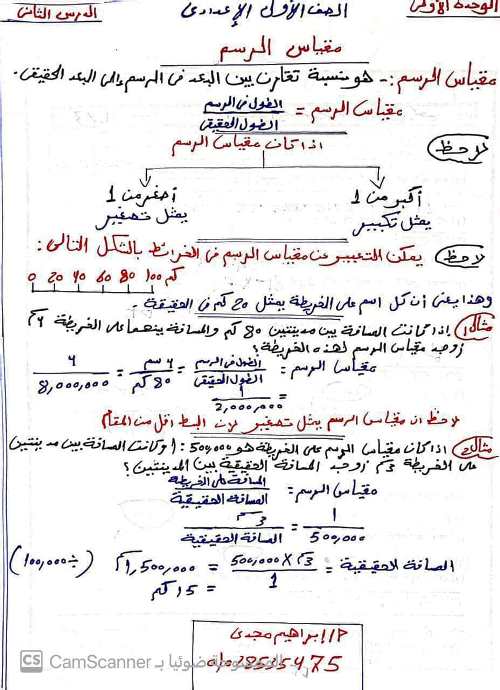 الوحدة الأولى
الصف الأول الإعدادى
الدرس الثانى
مقياس الرسم
مقياس الرسم :- هو نسبة تقارن بين البعد فى الرسم إلى البعد الحقيقى.
مقياس الرسم = الطول فى الرسم / الطول الحقيقى
لاحظ
اذا كان مقياس الرسم
أكبر من 1
أصغر من 1
يمثل تكبير
يمثل تصغير
لاحظ
يمكن التعبير عن مقياس الرسم فى الخرائط بالشكل التالى :
0 20 40 60 80 100 كم
وهذا يعنى أن كل 1سم على الخريطة يمثل 20 كم فى الحقيقة.
مثال1 إذا كانت المسافة بين مدينتين 80 كم والمسافة بينهما على الخريطة 4سم
أوجد مقياس الرسم لهذه الخريطة؟
مقياس الرسم = الطول فى الرسم / الطول الحقيقى = 4 سم / 80 كم = 4 / 8,000,000
= 1 / 2,000,000
لاحظ ان مقياس الرسم يمثل تصغير لان البسط اقل من المقام
مثال2 اذا كان مقياس الرسم على الخريطة هو 500,000 : 1 وكانت المسافة بين مدينتين
على الخريطة 3سم أوجد المسافة الحقيقية بين المدينتين؟
مقياس الرسم = المسافة على الخريطة / المسافة الحقيقية
1 / 500,000 = 3سم / المسافة الحقيقية
المسافة الحقيقية = 3سم × 500,000 / 1 = 1,500,000سم (÷ 100,000)
= 15 كم
إبراهيم مجدى
CS CamScanner الممسوحة ضوئيا بـ